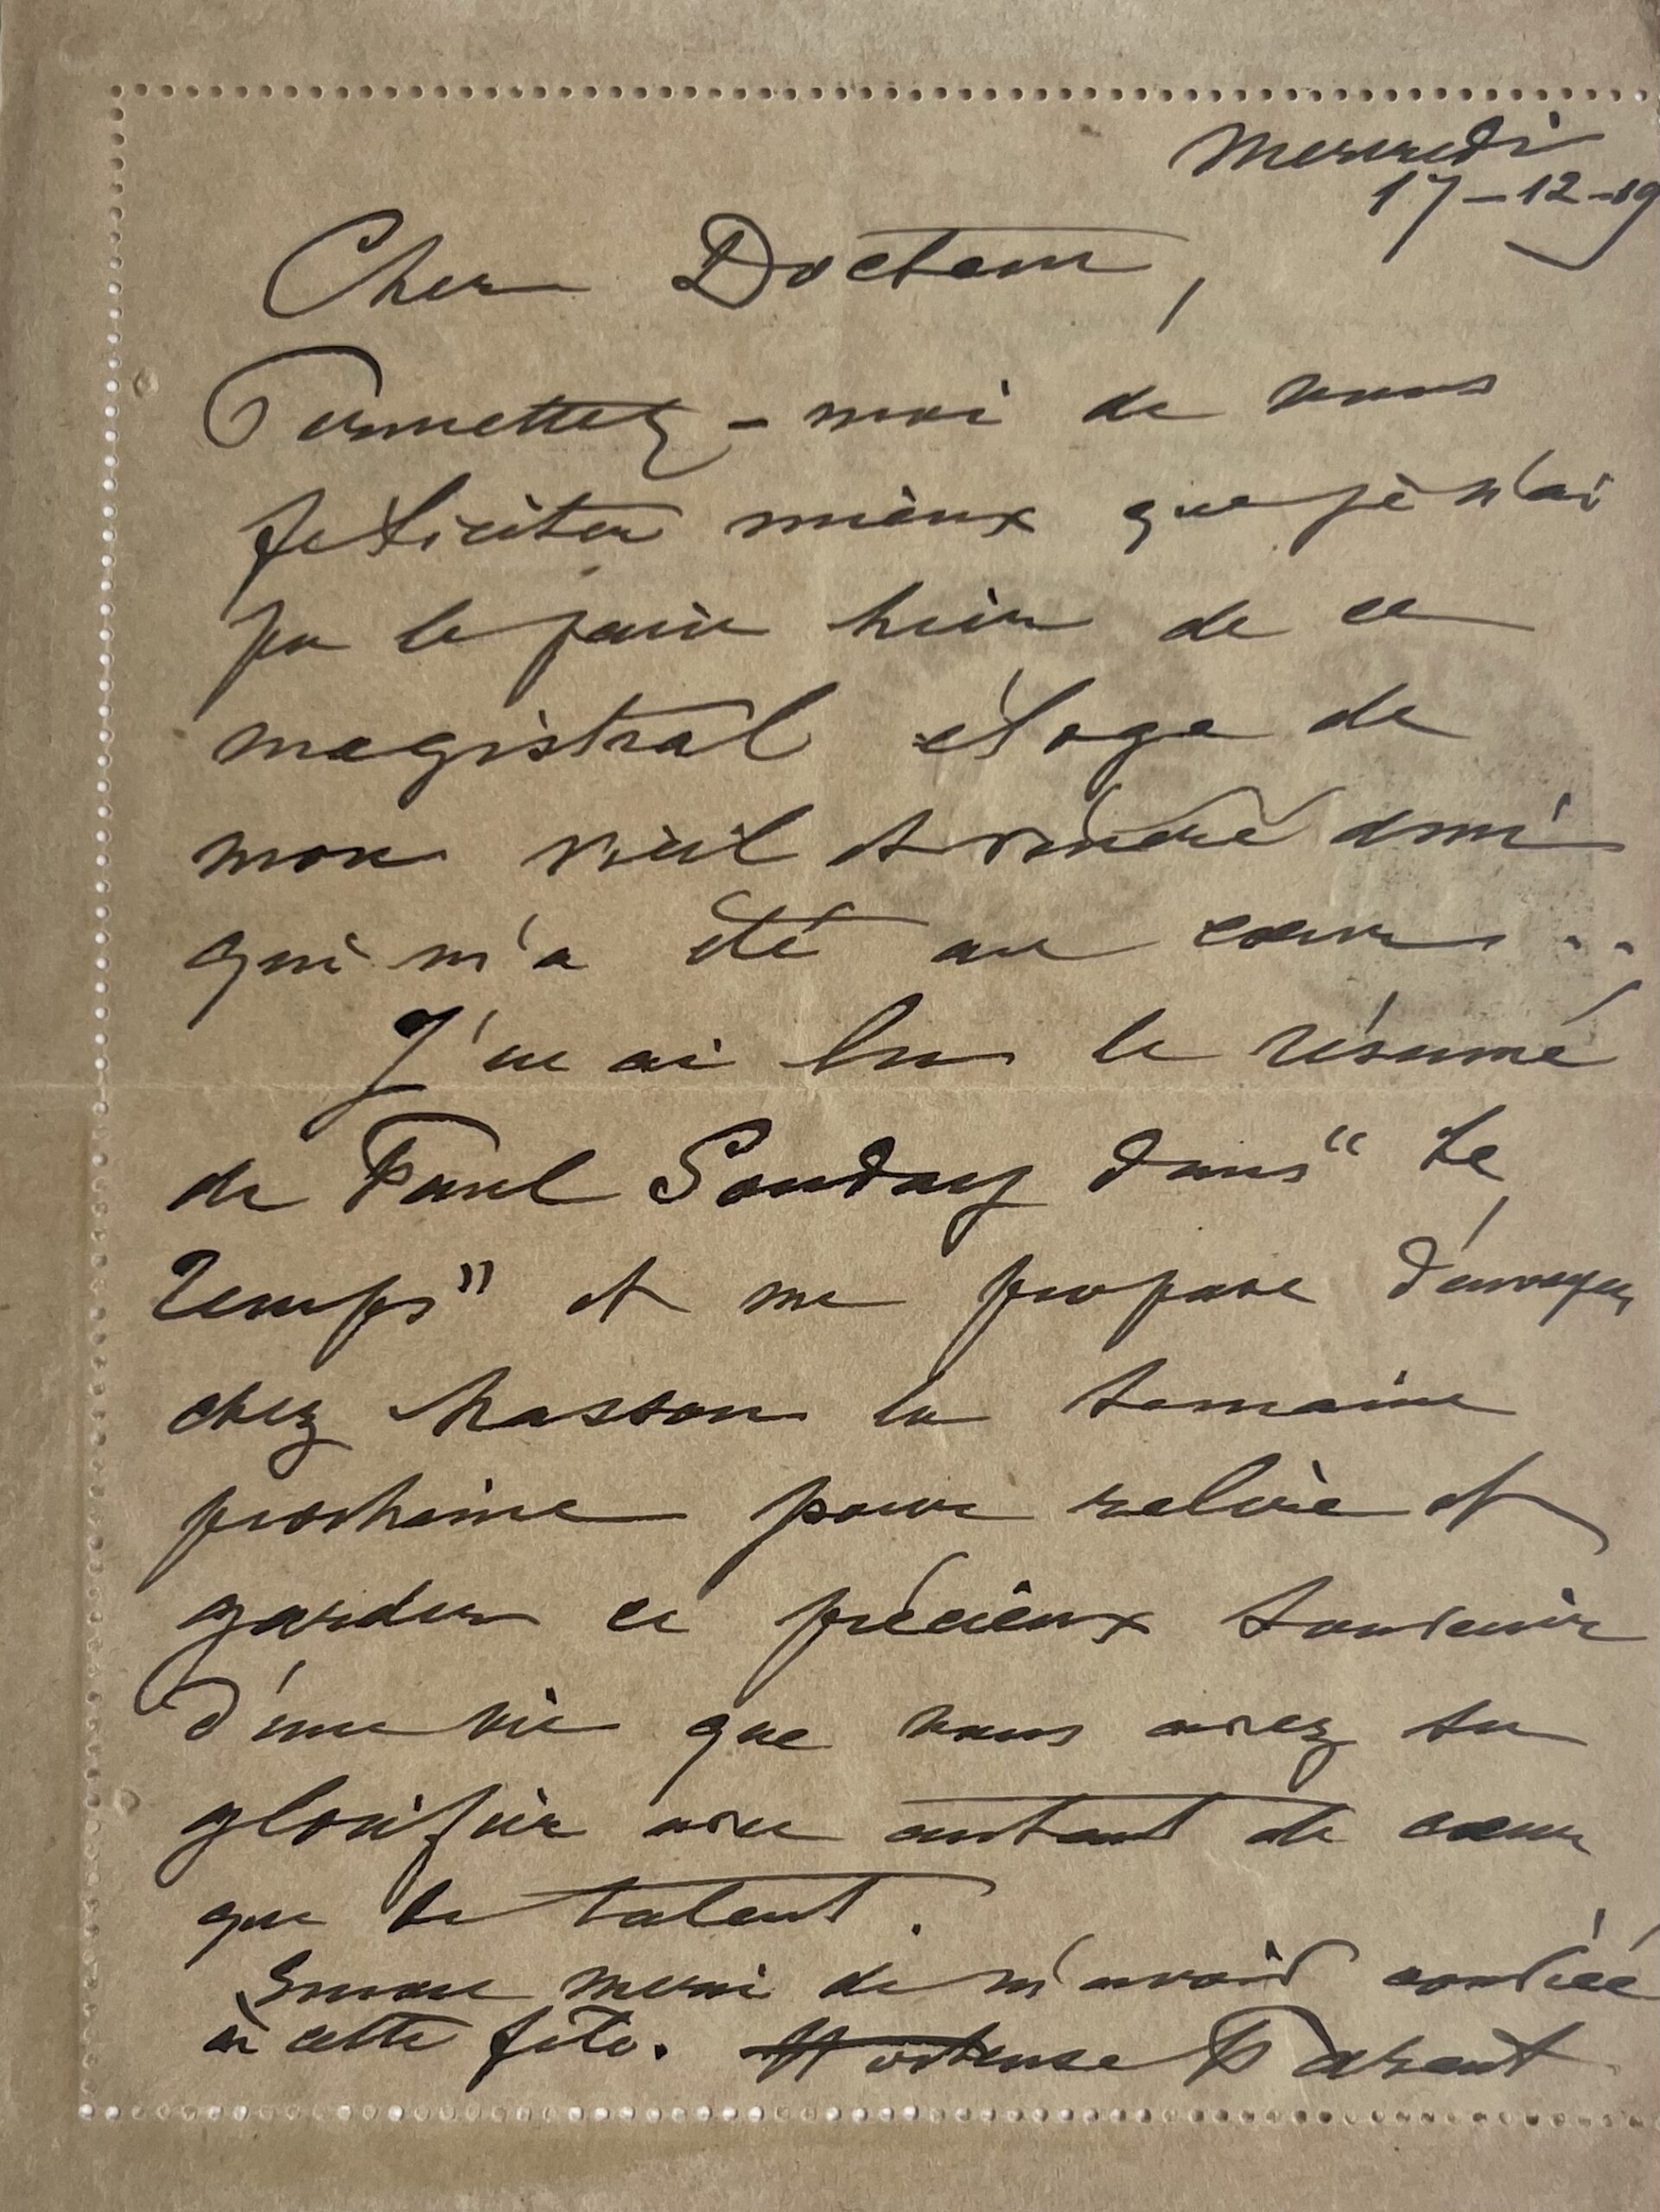 Mercredi
17-12-19
Cher Docteur,
Permettez-moi de vous
féliciter mieux que je n'ai
pu le faire hier de ce
magistral éloge de
mon vieil et vénéré ami
qui m'a été au coeur...
J'en ai lu le résumé
de Paul Souday dans "Le
Temps" et me propose d'envoyer
chez Masson la semaine
prochaine pour relire et
garder ce précieux souvenir
d'une vie que vous avez su
glorifier avec autant de coeur
que de talent.
Encore merci de m'avoir conviée
à cette fête. Hortense Parent